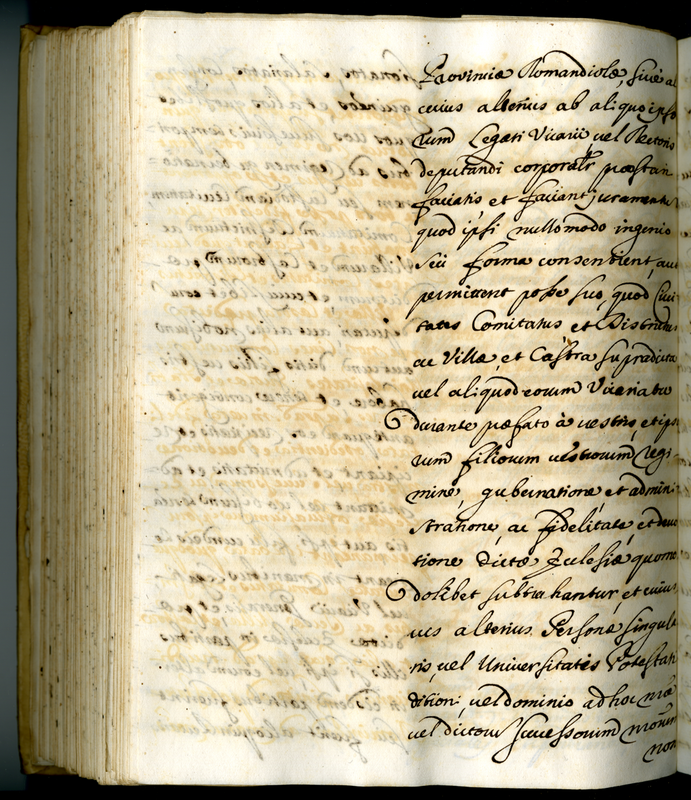 Provinciæ Romandiolæ, sive al
cuius alterius ab aliquo ipso
rum Legati Vicarii vel Rectoris
deputandi corporalr præstari
faciatis et faciant juramentu
quod ipsi nullo modo ingenio
seu forma consentient, aut
permittent posse suo, quod Civi
tates Comitatus et Districtus
ac Villæ, et Castra supradicta
vel aliquod eorum Vicariatu
durante præfato à vestro, et ips
rum filiorum vestrorum Regi
mine, gubernatione, et admini
stratione, ac fidelitate, et devo
tione dictæ Ecclesiæ quomo
dolibet subtrahantur, et cuius
vis alterius Personæ singula
ris, vel Universitatis Potestati
dition, vel dominio ad hoc
vel dictorum successorum
non